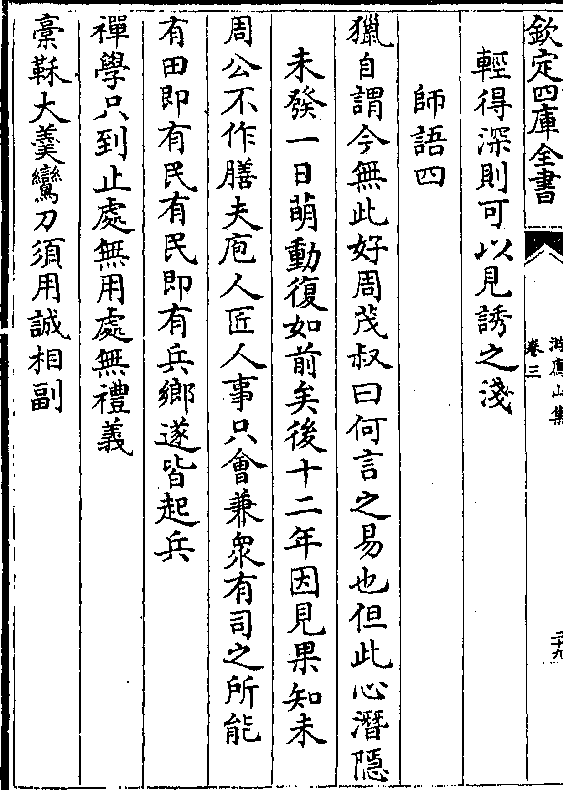 欽定四庫全書
游廌山集
卷三
二十九
輕得深則可以見誘之淺
師語四
獵自謂今無此好周茂叔曰何言之易也但此心潛隱
未發一日萌動復如前矣後十二年因見果知未
周公不作膳夫庖人匠人事只會兼衆有司之所能
有田即有民有民即有兵鄉遂皆起兵
禪學只到止處無用處無禮義
槀鞂大羹鸞刀須用誠相副